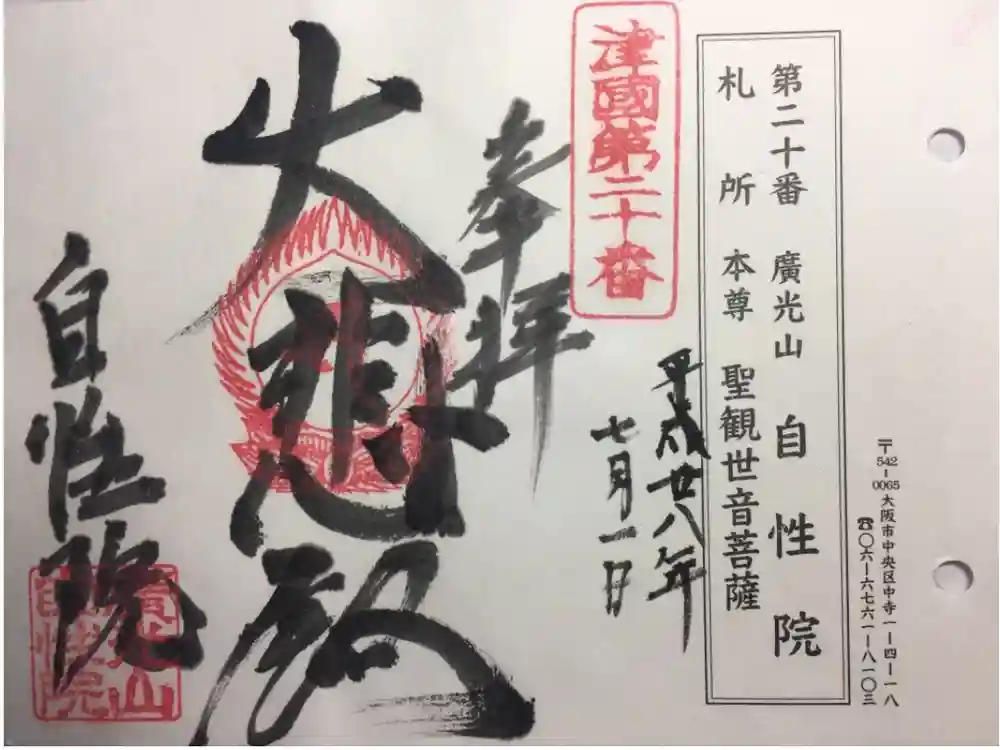 〒542-0065大阪市中央区中寺一-四-一八
☎〇六-六七六一-八一〇三
第二十番 廣光山 自性院
札所 本尊 聖観世音菩薩
津國第二十番
平成廿八年
七月一日
奉拝
大悲殿
自性院
廣光山
自性院